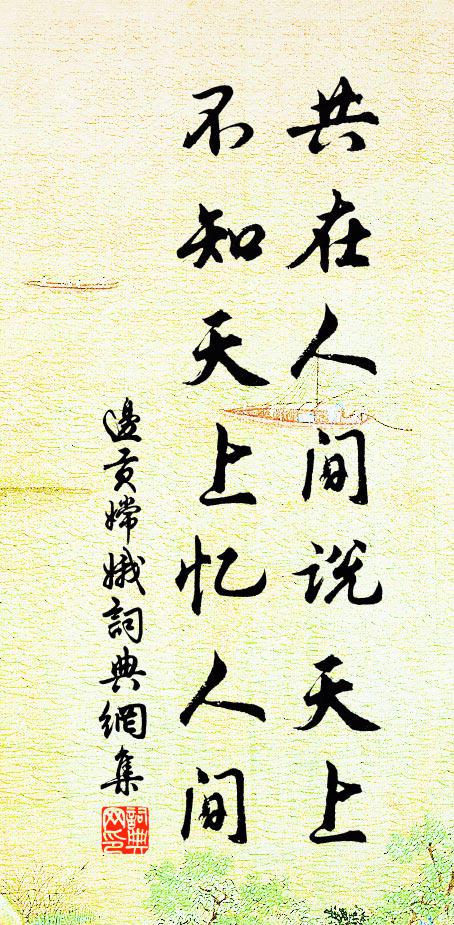 共在人间说天上
不知天上忆人间
邊貢嫦娥詞典網集
詞典网印